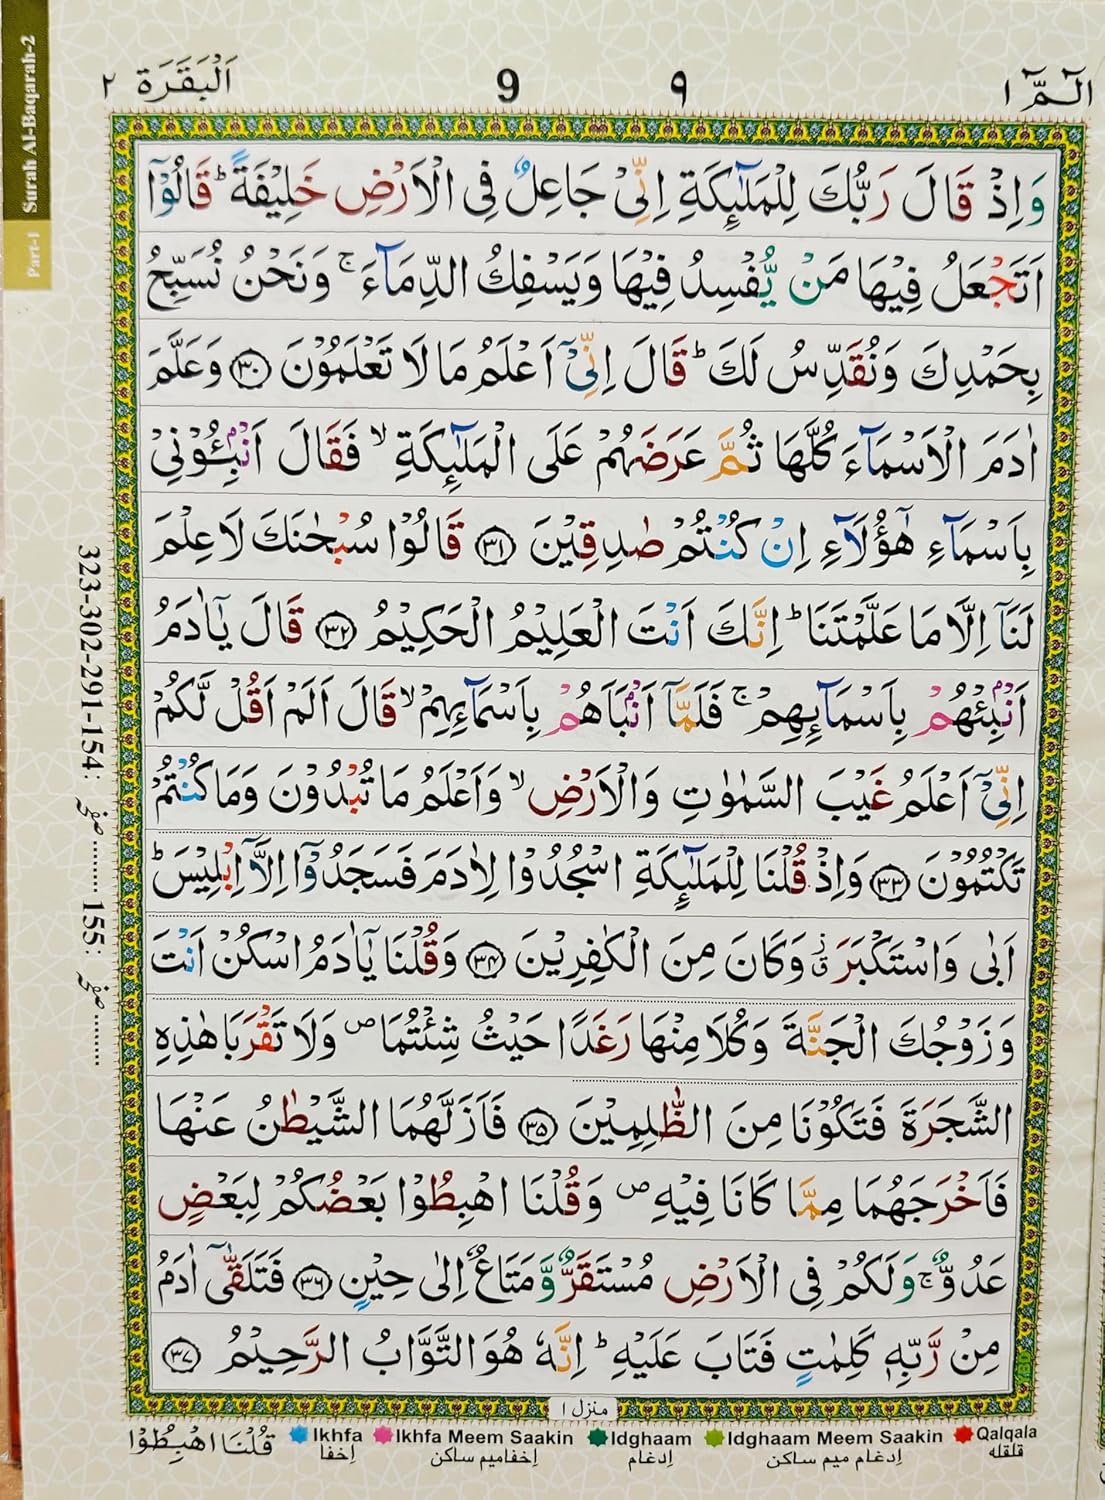 الٓمّٓ ١
٩
9
اَلْبَقَرَة ٢
Surah Al-Baqarah-2
Part-1
وَاِذْ قَالَ رَبُّكَ لِلْمَلٰٓئِكَةِ اِنِّىْ جَاعِلٌ فِى الْاَرْضِ خَلِيْفَةً ؕ قَالُوْٓا
اَتَجْعَلُ فِيْهَا مَنْ يُّفْسِدُ فِيْهَا وَيَسْفِكُ الدِّمَآءَ ۚ وَنَحْنُ نُسَبِّحُ
بِحَمْدِكَ وَنُقَدِّسُ لَكَ ؕ قَالَ اِنِّىْٓ اَعْلَمُ مَا لَا تَعْلَمُوْنَ ﴿٣٠﴾ وَعَلَّمَ
اٰدَمَ الْاَسْمَآءَ كُلَّهَا ثُمَّ عَرَضَهُمْ عَلَى الْمَلٰٓئِكَةِ ۙ فَقَالَ اَنْۢبِـُٔوْنِىْ
بِاَسْمَآءِ هٰٓؤُلَآءِ اِنْ كُنْتُمْ صٰدِقِيْنَ ﴿٣١﴾ قَالُوْا سُبْحٰنَكَ لَا عِلْمَ
لَنَآ اِلَّا مَا عَلَّمْتَنَا ؕ اِنَّكَ اَنْتَ الْعَلِيْمُ الْحَكِيْمُ ﴿٣٢﴾ قَالَ يٰٓاٰدَمُ
اَنْۢبِئْهُمْ بِاَسْمَآئِهِمْ ۚ فَلَمَّآ اَنْۢبَاَهُمْ بِاَسْمَآئِهِمْ ۙ قَالَ اَلَمْ اَقُلْ لَّكُمْ
اِنِّىْٓ اَعْلَمُ غَيْبَ السَّمٰوٰتِ وَالْاَرْضِ ۙ وَاَعْلَمُ مَا تُبْدُوْنَ وَمَا كُنْتُمْ
تَكْتُمُوْنَ ﴿٣٣﴾ وَاِذْ قُلْنَا لِلْمَلٰٓئِكَةِ اسْجُدُوْا لِاٰدَمَ فَسَجَدُوْٓا اِلَّآ اِبْلِيْسَ ؕ
اَبٰى وَاسْتَكْبَرَ ۗ وَكَانَ مِنَ الْكٰفِرِيْنَ ﴿٣٤﴾ وَقُلْنَا يٰٓاٰدَمُ اسْكُنْ اَنْتَ
وَزَوْجُكَ الْجَنَّةَ وَكُلَا مِنْهَا رَغَدًا حَيْثُ شِئْتُمَا ۖ وَلَا تَقْرَبَا هٰذِهِ
الشَّجَرَةَ فَتَكُوْنَا مِنَ الظّٰلِمِيْنَ ﴿٣٥﴾ فَاَزَلَّهُمَا الشَّيْطٰنُ عَنْهَا
فَاَخْرَجَهُمَا مِمَّا كَانَا فِيْهِ ۖ وَقُلْنَا اهْبِطُوْا بَعْضُكُمْ لِبَعْضٍ
عَدُوٌّ ۚ وَلَكُمْ فِى الْاَرْضِ مُسْتَقَرٌّ وَّمَتَاعٌ اِلٰى حِيْنٍ ﴿٣٦﴾ فَتَلَقّٰٓى اٰدَمُ
مِنْ رَّبِّهٖ كَلِمٰتٍ فَتَابَ عَلَيْهِ ؕ اِنَّهٗ هُوَ التَّوَّابُ الرَّحِيْمُ ﴿٣٧﴾
منزل ١
323-302-291-154: صفحہ ........ 155: صفحہ ........
Ikhfa Ikhfa Meem Saakin Idghaam Idghaam Meem Saakin Qalqala
اِخفا اِخفامیم ساکن اِدغام اِدغام میم ساکن قلقلہ
قُلْنَا اهْبِطُوْا